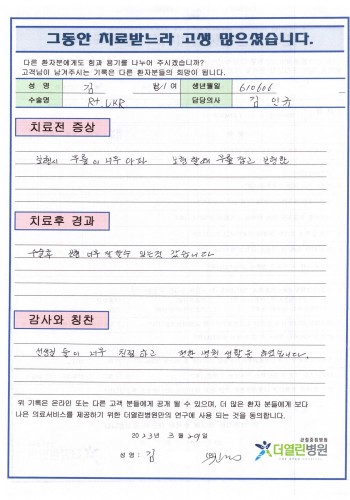 그동안 치료받느라 고생 많으셨습니다.
다른 환자분에게도 힘과 용기를 나누어 주시겠습니까?
고객님이 남겨주시는 기록은 다른 환자분들의 희망이 됩니다.
성 명 김 남 / 여 생년월일 610606
수술명 Rt. UKR 담당의사 김
치료전 증상
무릎이 너무 아파
치료후 경과
수술후 너무 잘 있는것 같습니다
감사와 칭찬
선생님 들이 너무 친절하고 편한 병원 생활을 하였습니다.
위 기록은 온라인 또는 다른 고객 분들에게 공개 될 수 있으며, 더 많은 환자 분들에게 보다
나은 의료서비스를 제공하기 위한 더열린병원만의 연구에 사용 되는 것을 동의합니다.
2023년 3월 29일
성명 : 김
관절중점병원
더열린병원